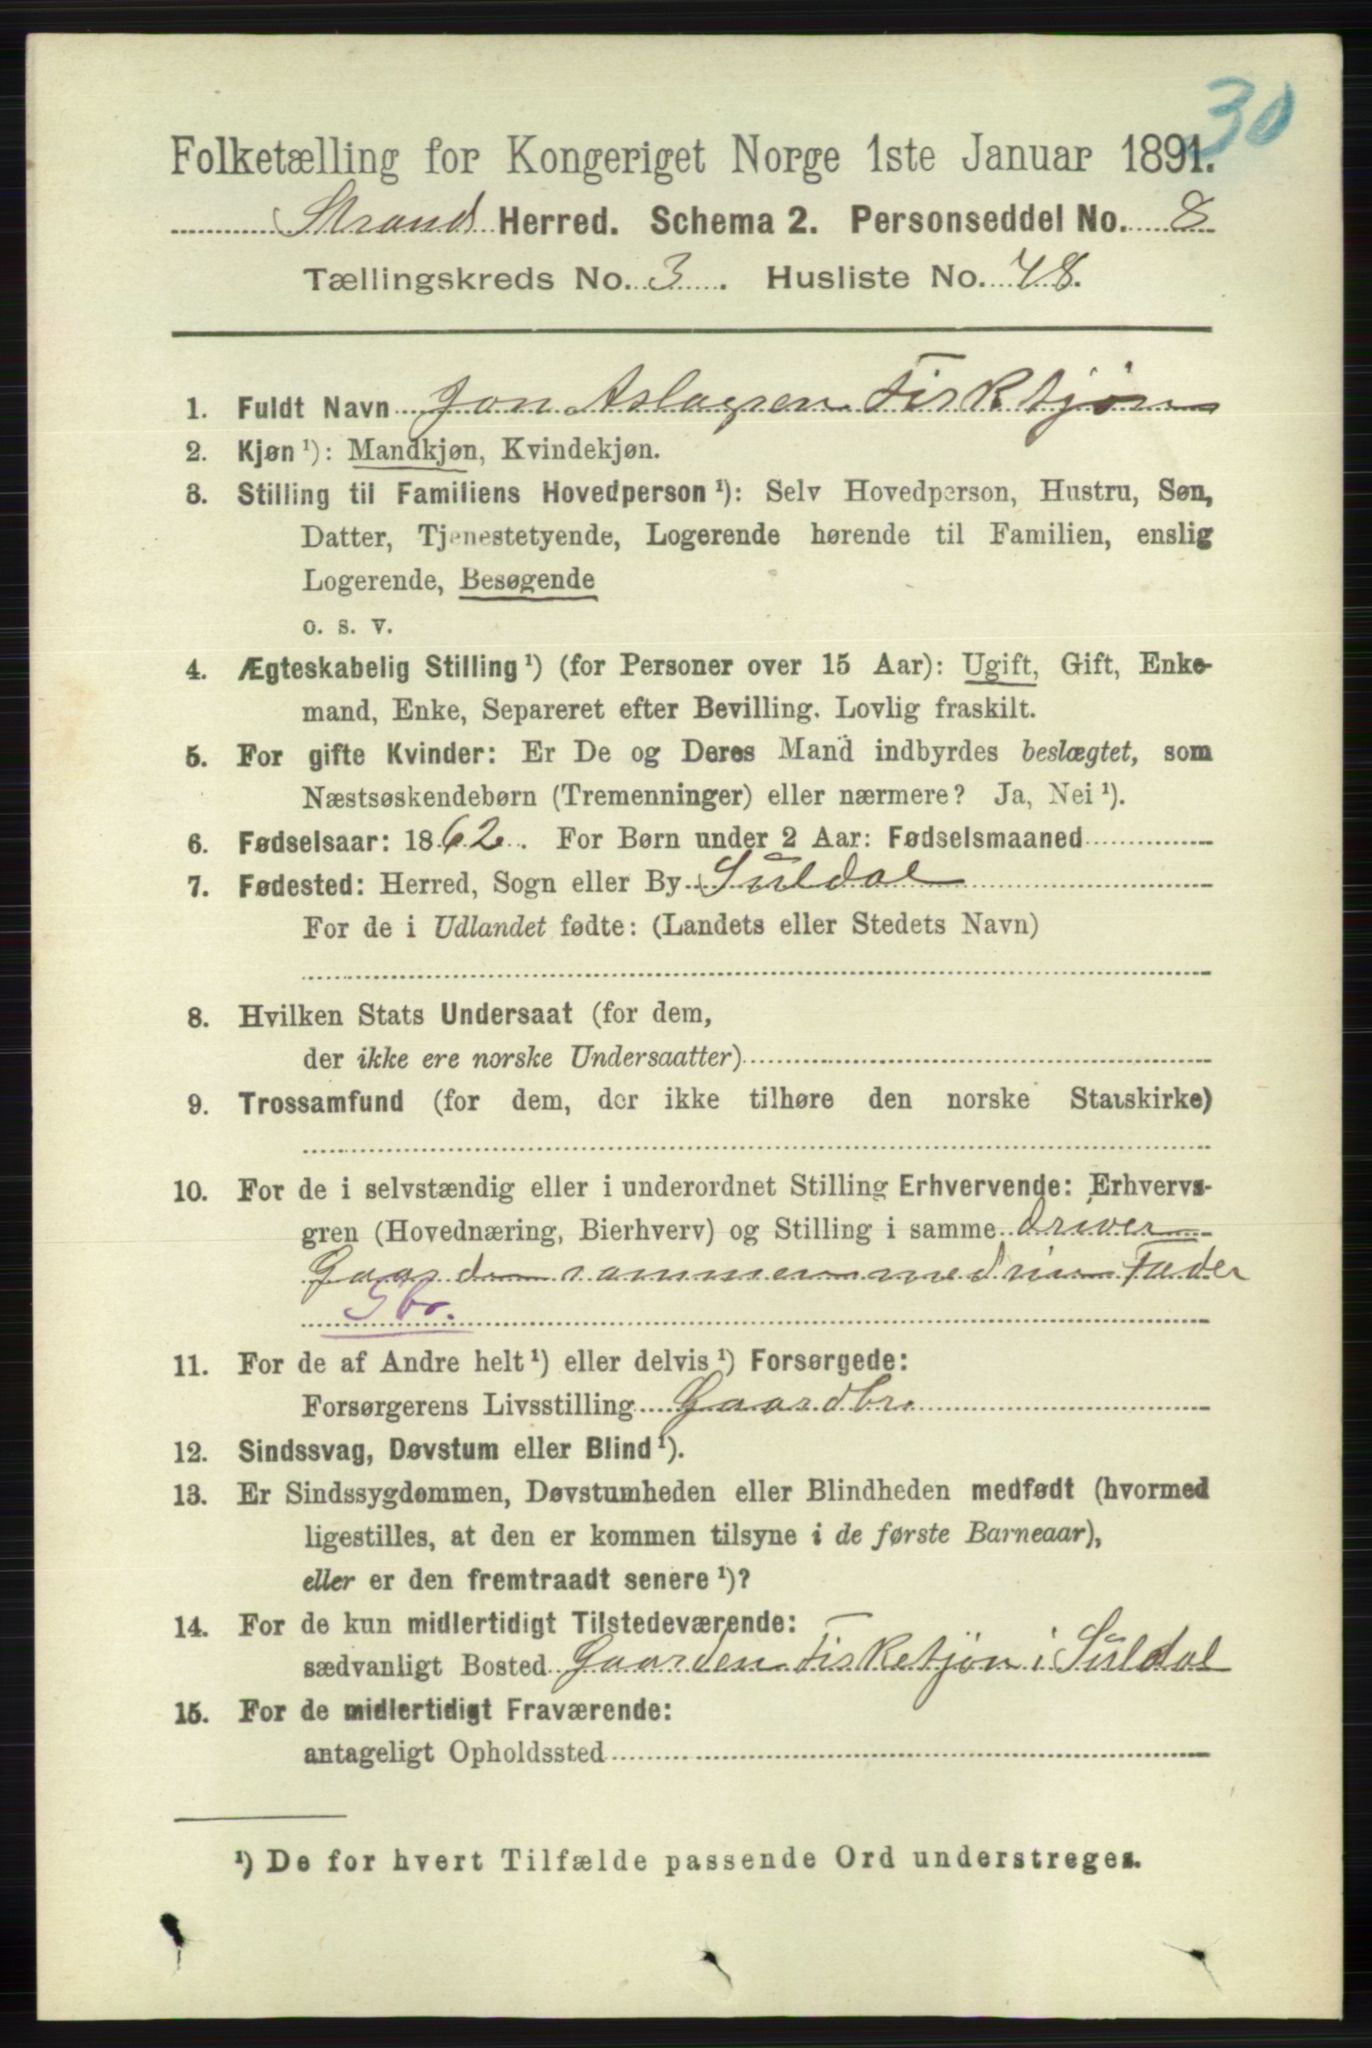 30
Folketælling for Kongeriget Norge 1ste Januar 1891.
Strand Herred. Schema 2. Personseddel No. 8
Tællingskreds No. 3. Husliste No. 48.
1. Fuldt Navn Jon Aslagsen Fisketjøn
2. Kjøn ¹): Mandkjøn, Kvindekjøn.
3. Stilling til Familiens Hovedperson ¹): Selv Hovedperson, Hustru, Søn,
Datter, Tjenestetyende, Logerende hørende til Familien, enslig
Logerende, Besøgende
o. s. v.
4. Ægteskabelig Stilling ¹) (for Personer over 15 Aar): Ugift, Gift, Enke-
mand, Enke, Separeret efter Bevilling. Lovlig fraskilt.
5. For gifte Kvinder: Er De og Deres Mand indbyrdes beslægtet, som
Næstsøskendebørn (Tremenninger) eller nærmere? Ja, Nei ¹).
6. Fødselsaar: 1862. For Børn under 2 Aar: Fødselsmaaned
7. Fødested: Herred, Sogn eller By Suldal
For de i Udlandet fødte: (Landets eller Stedets Navn)
8. Hvilken Stats Undersaat (for dem,
der ikke ere norske Undersaatter)
9. Trossamfund (for dem, der ikke tilhøre den norske Statskirke)
10. For de i selvstændig eller i underordnet Stilling Erhvervende: Erhvervs-
gren (Hovednæring, Bierhverv) og Stilling i samme driver
Gaarden sammen med sin Fader
Gbr.
11. For de af Andre helt ¹) eller delvis ¹) Forsørgede:
Forsørgerens Livsstilling Gaardbr.
12. Sindssvag, Døvstum eller Blind ¹).
13. Er Sindssygdommen, Døvstumheden eller Blindheden medfødt (hvormed
ligestilles, at den er kommen tilsyne i de første Barneaar),
eller er den fremtraadt senere ¹)?
14. For de kun midlertidigt Tilstedeværende:
sædvanligt Bosted Gaarden Fisketjøn i Suldal
15. For de midlertidigt Fraværende:
antageligt Opholdssted
¹) De for hvert Tilfælde passende Ord understreges.